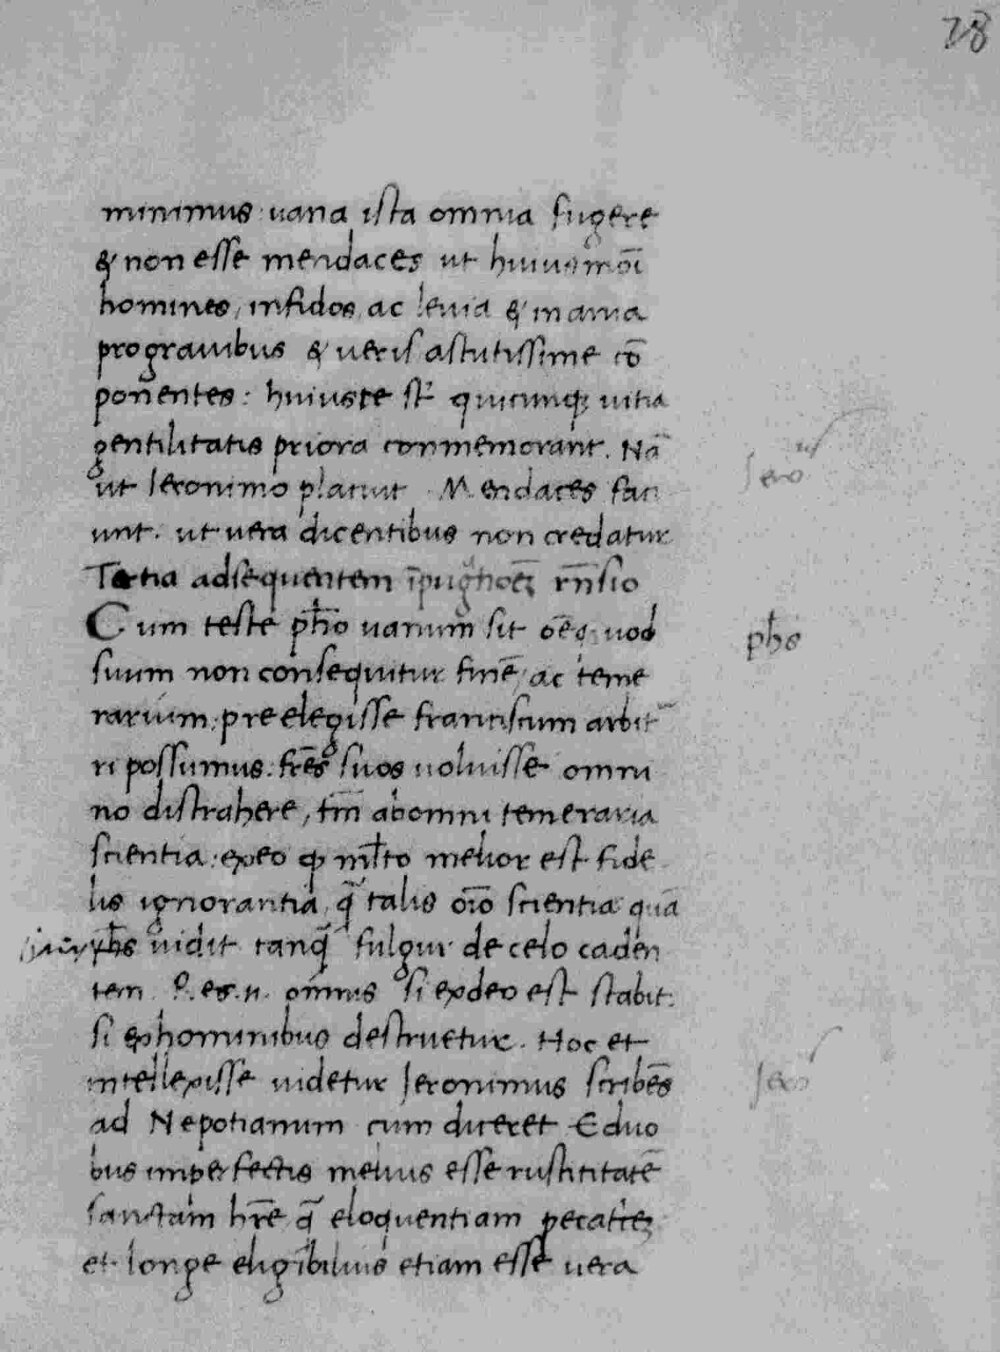 78
minimus: uana ista omnia fugere
& non esse mendaces ut huiusmōi
homines, infidos, ac leuia & inania
pro grauibus & ueris astutissime cō
ponentes: huiuste st̄ quicunqꝫ uitia
gentilitatis priora conmemorant. Nā
ut Ieronimo placuit Mendaces faci
unt. ut uera dicentibus non credatur
Iero
Tertia ad sequentem rn̄sio
Cum teste pħo uanum sit om̄e quod
phs
suum non consequitur finē, ac teme
rarium: preelegisse franciscum arbit̄
ri possumus. fr̄es suos uoluisse omni
no distrahere, tm̄ ab omni temeraria
scientia: ex eo ꝙ ml̄to melior est fide
lis ignorantia, q̄ talis scientia quā
uidit tanq̄ fulgur de celo caden
tem. omnis si ex deo est stabit:
si ex hominibus destruetur. Hoc et
intellexisse uidetur Ieronimus scribēs
Iero
ad Nepotianum cum diceret E duo
bus imperfectis melius esse rustititatē
sanctam hr̄e q̄ eloquentiam peccatricē
et longe eligibilius etiam esse uera